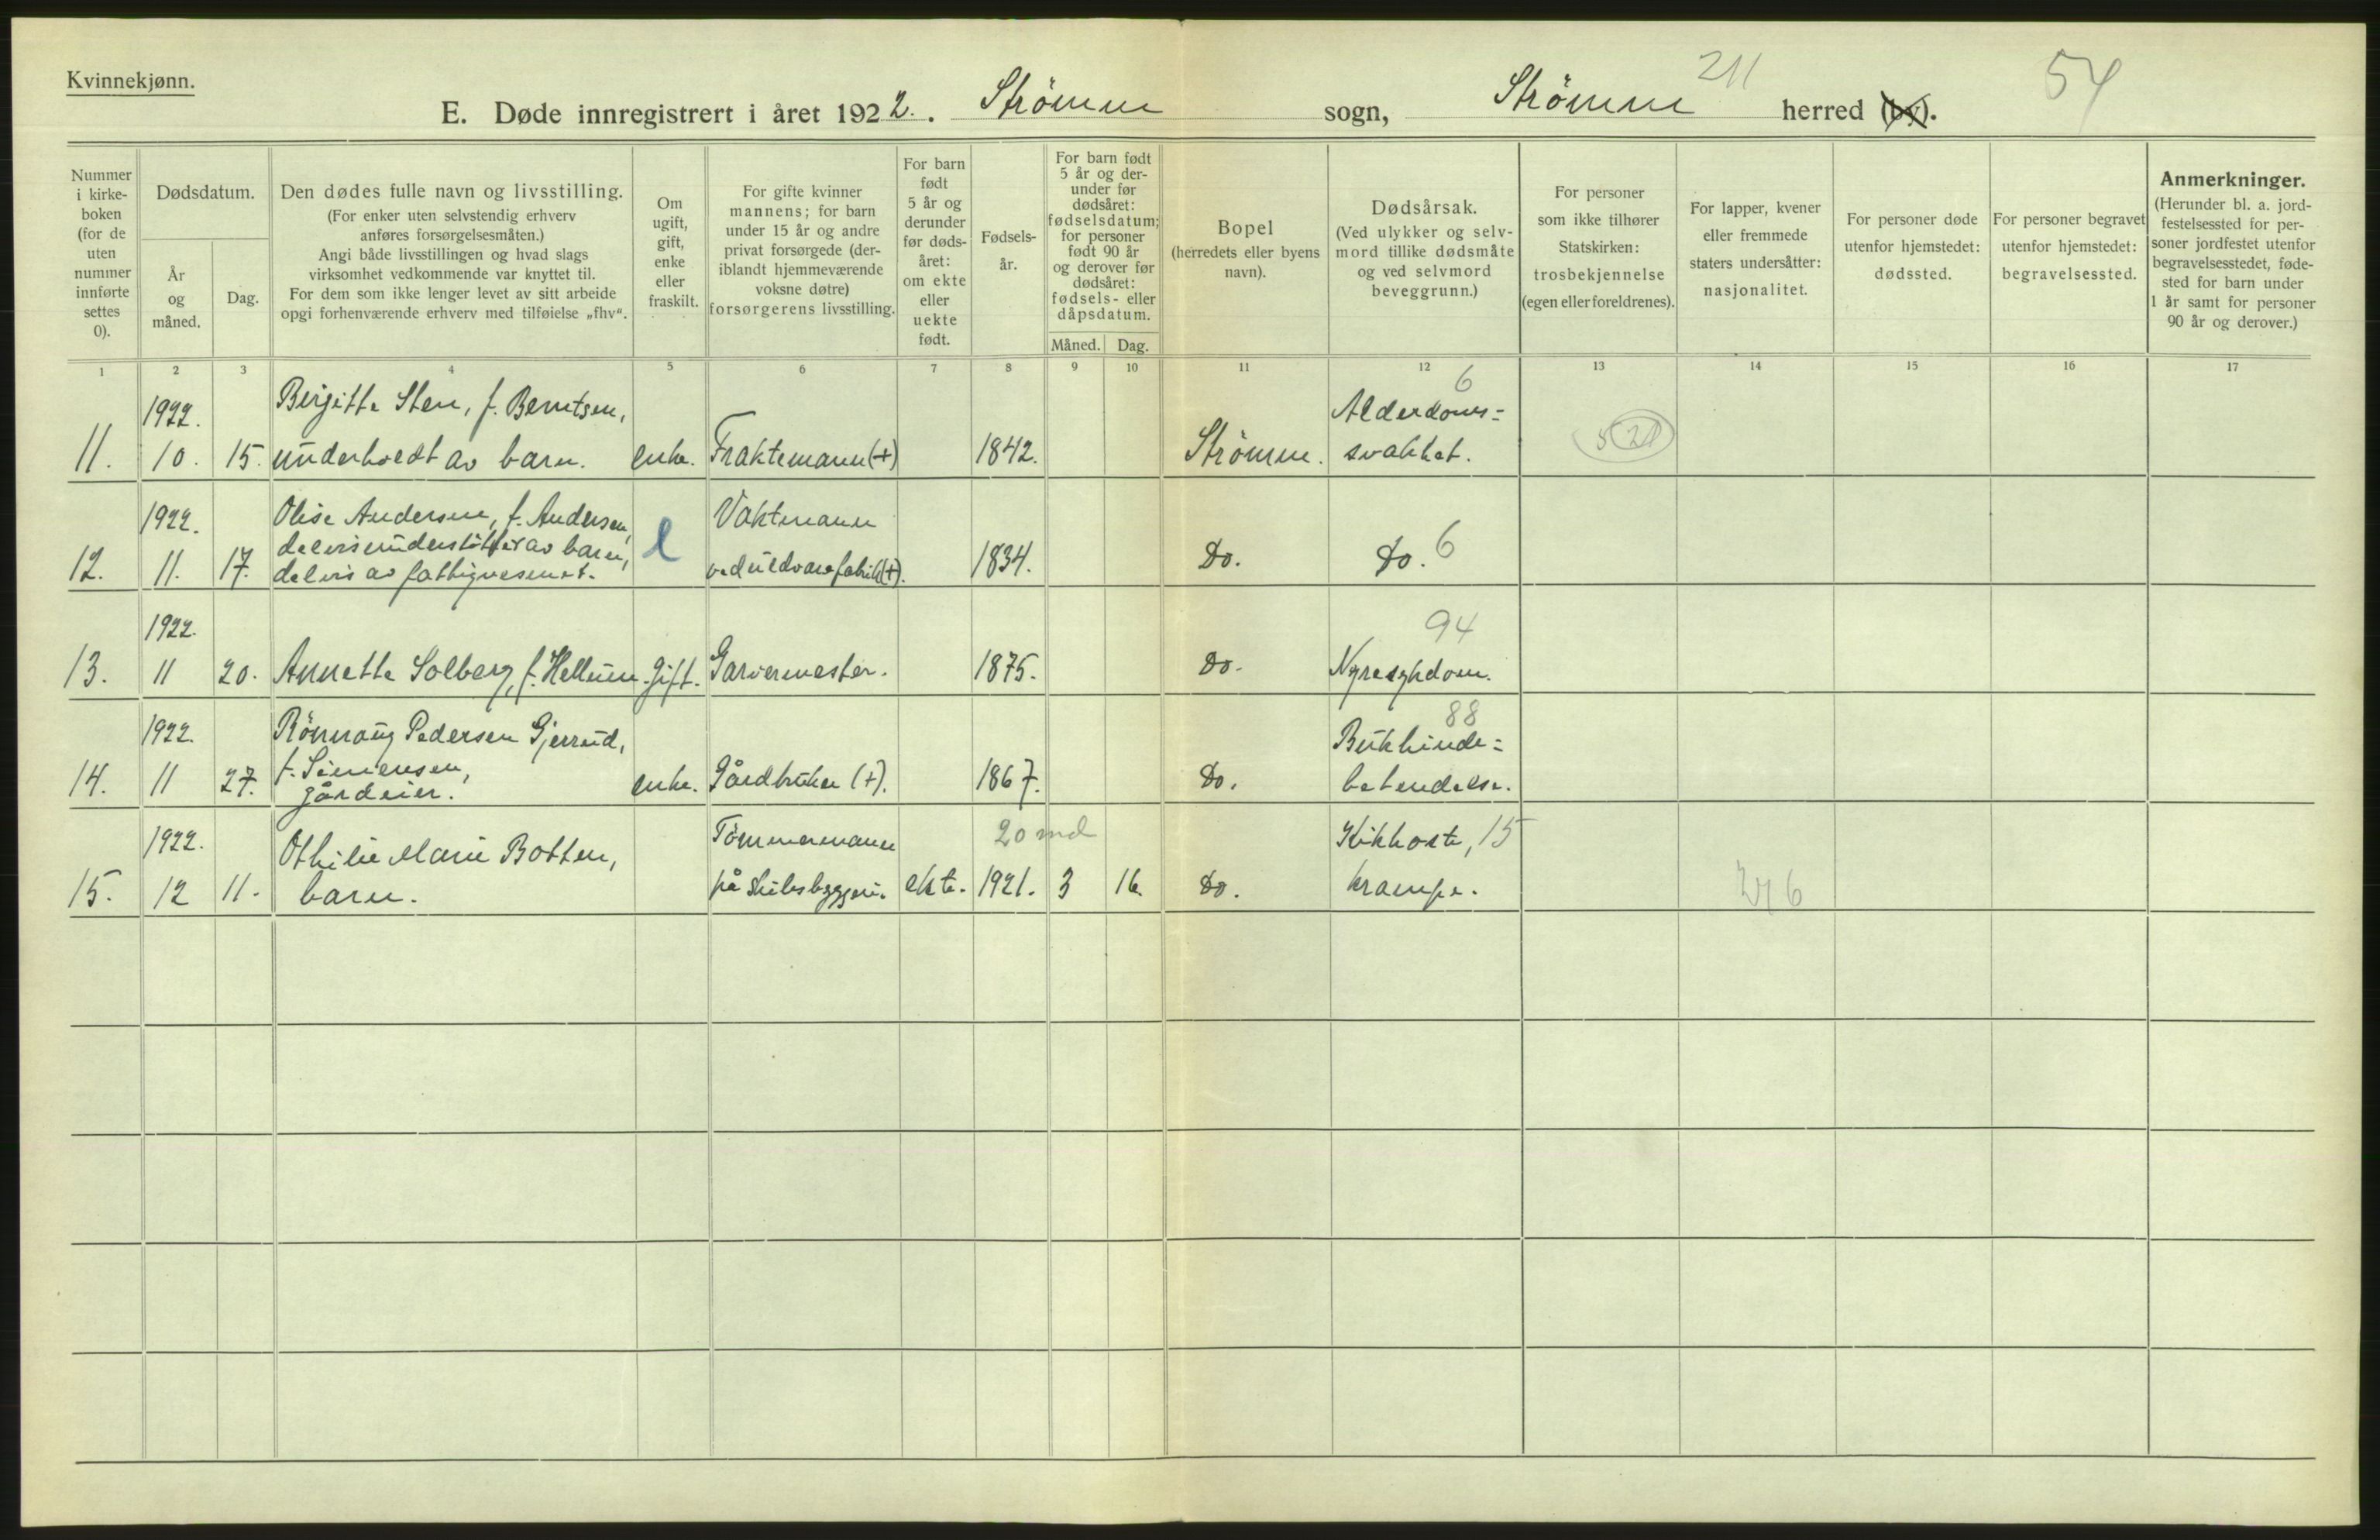 Kvinnekjønn.
211
54
E. Døde innregistrert i året 1922. Strömm sogn, Strömm herred (by).
Nummer
i kirke-
boken
(for de
uten
nummer
innførte
settes
0).
Dødsdatum.
År
og
måned.
Dag.
Den dødes fulle navn og livsstilling.
(For enker uten selvstendig erhverv
anføres forsørgelsesmåten.)
Angi både livsstillingen og hvad slags
virksomhet vedkommende var knyttet til.
For dem som ikke lenger levet av sitt arbeide
opgi forhenværende erhverv med tilføielse „fhv“.
Om
ugift,
gift,
enke
eller
fraskilt.
For gifte kvinner
mannens; for barn
under 15 år og andre
privat forsørgede (der-
iblandt hjemmeværende
voksne døtre)
forsørgerens livsstilling.
For barn
født
5 år og
derunder
før døds-
året:
om ekte
eller
uekte
født.
Fødsels-
år.
For barn født
5 år og der-
under før
dødsåret:
fødselsdatum;
for personer
født 90 år
og derover før
dødsåret:
fødsels- eller
dåpsdatum.
Måned. Dag.
Bopel
(herredets eller byens
navn).
Dødsårsak.
(Ved ulykker og selv-
mord tillike dødsmåte
og ved selvmord
beveggrunn.)
For personer
som ikke tilhører
Statskirken:
trosbekjennelse
(egen eller foreldrenes).
For lapper, kvener
eller fremmede
staters undersåtter:
nasjonalitet.
For personer døde
utenfor hjemstedet:
dødssted.
For personer begravet
utenfor hjemstedet:
begravelsessted.
Anmerkninger.
(Herunder bl. a. jord-
festelsessted for per-
soner jordfestet utenfor
begravelsesstedet, føde-
sted for barn under
1 år samt for personer
90 år og derover.)
1 2 3 4 5 6 7 8 9 10 11 12 13 14 15 16 17
1922. Birgitte Sten, f. Berntsen, Alderdoms= 6
11. 10. 15. underholdt av barn. enke. Fraktemann (+) 1842. Strömm. svakhet. 5 21
1922. Olise Andersen, f. Andersen, Vaktmann
delvis understöttet av barn, l
12. 11. 17. delvis av fattigvesenet. ved uldvarefabrik (+). 1834. Do. Do. 6
1922. 94
13. 11 20. Annette Solberg, f. Hellum. gift. Garvermester. 1875. Do. Nyresykdom.
1922. Rönnaug Pedersen Gjerrud, 88 Bukhinde=
14. 11 27. f. Simensen, enke. Gårdbruker (+). 1867. Do. betendelse.
gårdeier.
1922. Othilie Marie Botten, Tömmermann 20 md Kikhoste, 15
15. 12 11. barn. på skibsbyggeri. ekte. 1921. 3 16 Do. krampe.